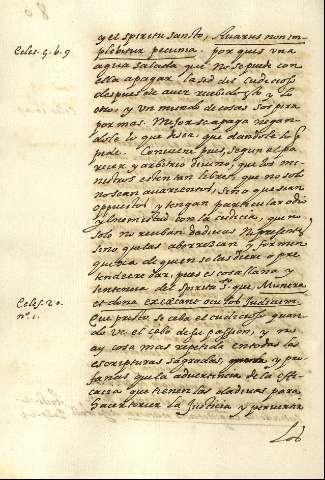 y el spiritu sancto, Auarus non im
Celes. 5. b. 9
plebitur pecunia. porque es vna
agua salada que no se puede con
ella apagar la sed del cudicioso
despues de auer recibido esto y lo
otro, y vn mundo de cosas sospira
por mas. Mejor se apaga negan
dole lo que dessea, que dandole lo q
pide. Conuiene pues, segun el pa
recer y arbitrio diuino, que los mi
nistros esten tan libres, que no solo
no sean auarientos, sino que sean
oppuestos y tengan particular odio
y enemistad con la cudicia, que no
solo no reciban dadiuas ni presentes
sino que las aborrescan y formen
quexa de quien se las diere o pre
tendiere dar, pues es cosa llana y
sentencia del Spiritu S. que Munera
Celes. 20.
nº. 1.
et dona excæcant oculos Judicum.
Que presto se ceba el cudicioso quan
do ve el cebo de su passion, y no
ay cosa mas repetida en todas las
escripturas sagradas, y pro
fanas que la aduertencia de la effi
cacia que tienen las dadiuas para
hacer torcer la Justicia y peruertir
Los